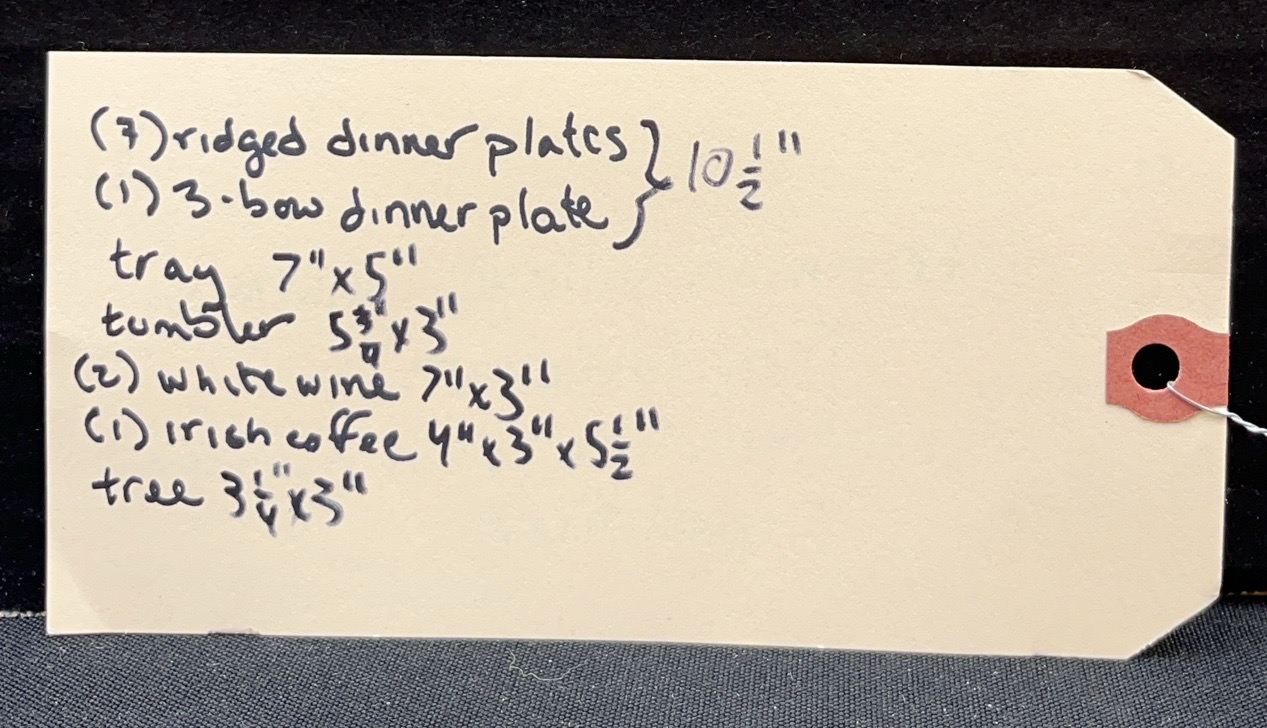 (7) ridged dinner plates } 10 1/2"
(1) 3-bow dinner plate
tray 7" x 5"
tumbler 5 3/4" x 3"
(2) white wine 7" x 3"
(1) irish coffee 4" x 3" x 5 1/2"
tree 3 1/4" x 3"